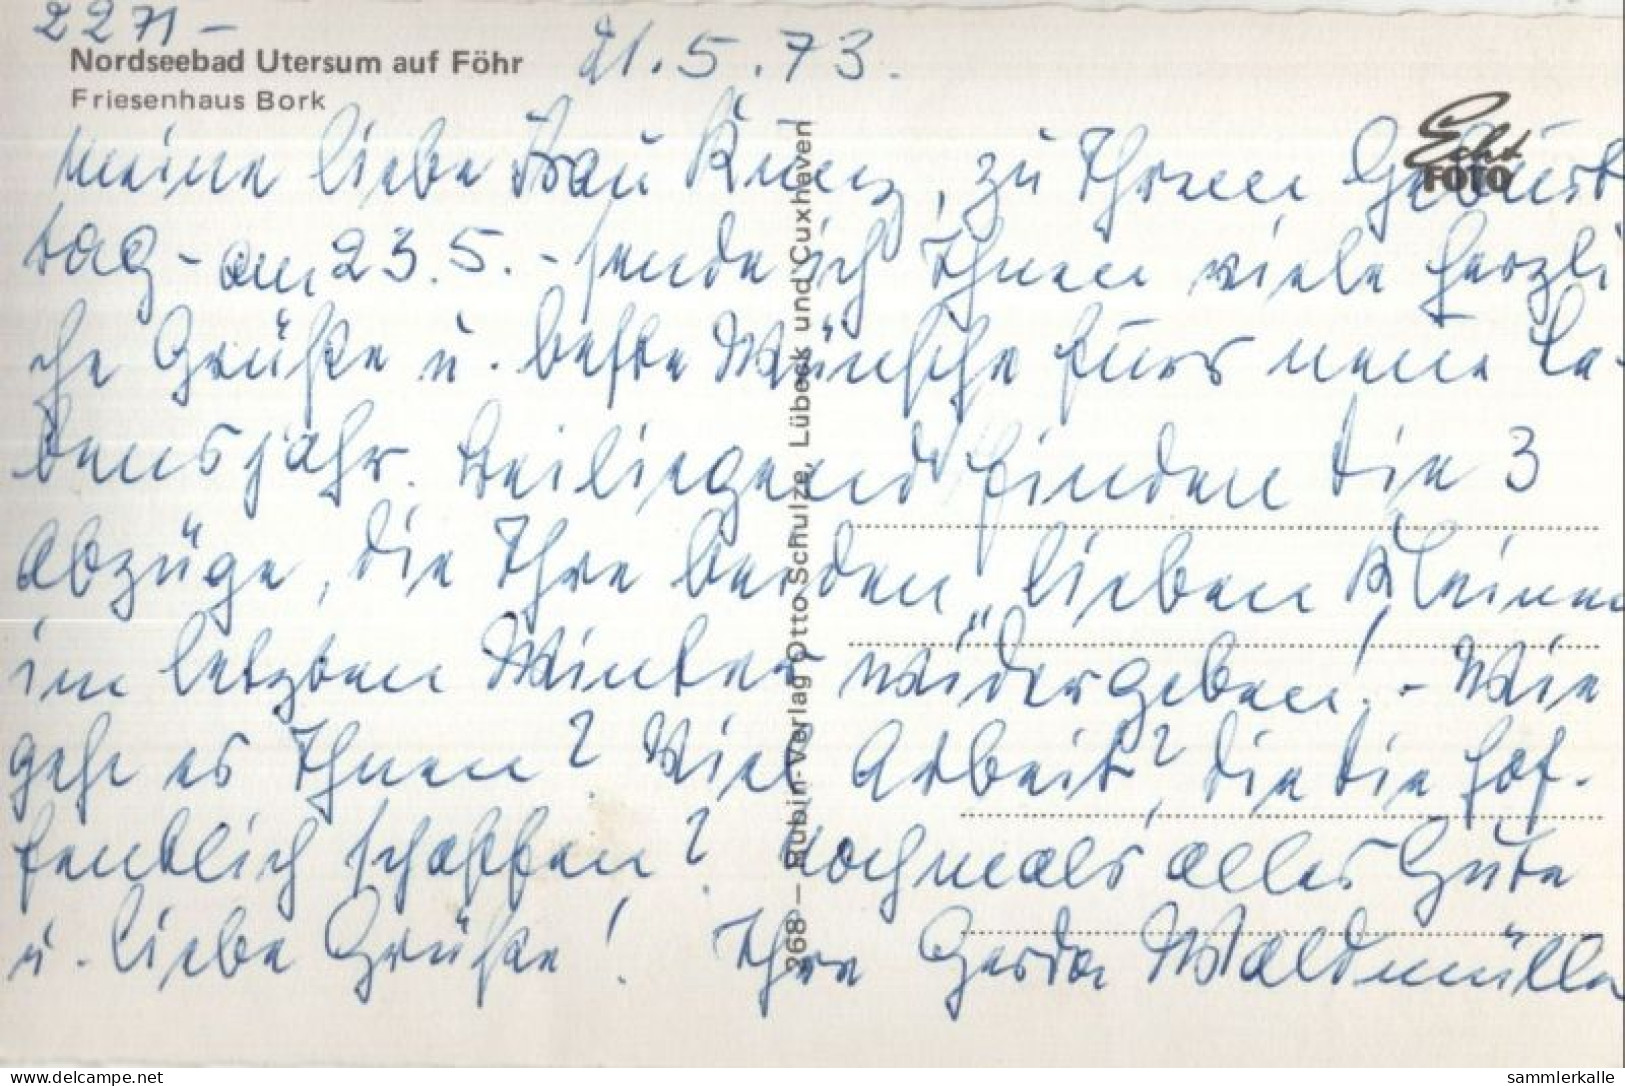 2271 -
Nordseebad Utersum auf Föhr
21.5.73.
Friesenhaus Bork
Echt
FOTO
Meine liebe Frau Kunz, zu Ihrem Geburts
tag - am 23.5. - sende ich Ihnen viele herzli
che Grüße u. beste Wünsche fürs neue Le-
bensjahr. Beiliegend finden Sie 3
Abzüge, die Ihre beiden lieben Kleinen
im letzten Winter widergeben! - Wie
geht es Ihnen? Viel Arbeit, die Sie hof-
fentlich schaffen? Nochmals alles Gute
u. liebe Grüße! Ihre Gerda Waldmüller
268 – Rubin-Verlag Otto Schulze, Lübeck und Cuxhaven
www.delcampe.net
sammlerkalle